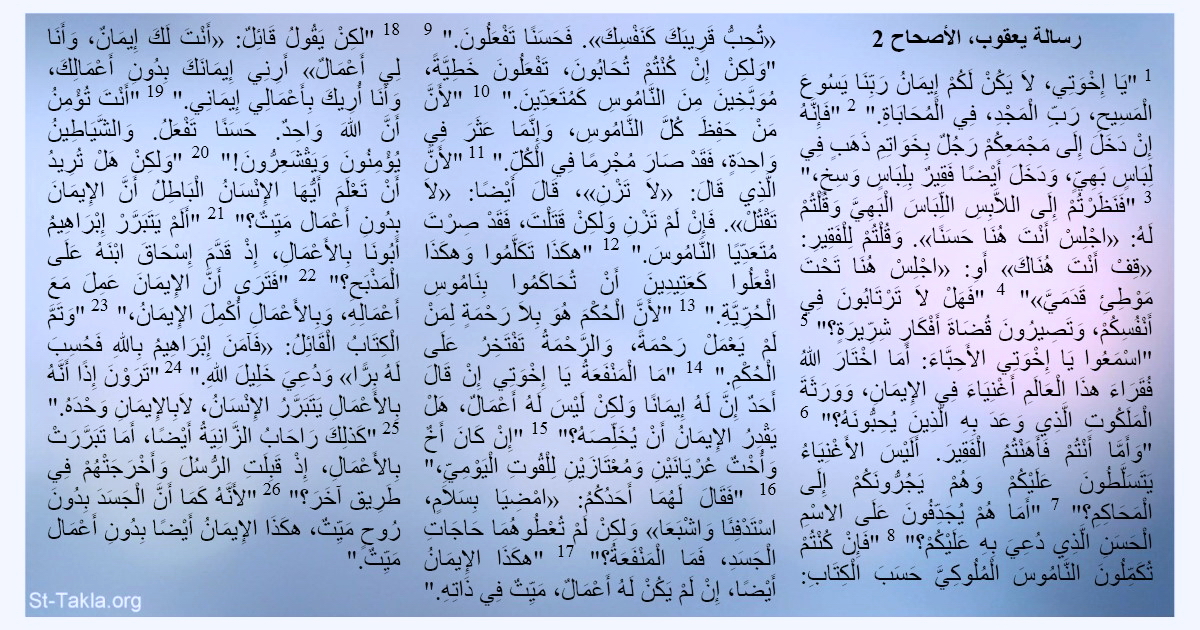 رسالة يعقوب، الأصحاح 2
1 "يَا إِخْوَتِي، لاَ يَكُنْ لَكُمْ إِيمَانُ رَبِّنَا يَسُوعَ
الْمَسِيحِ، رَبِّ الْمَجْدِ، فِي الْمُحَابَاةِ." 2 "فَإِنَّهُ
إِنْ دَخَلَ إِلَى مَجْمَعِكُمْ رَجُلٌ بِخَوَاتِمِ ذَهَبٍ فِي
لِبَاسٍ بَهِيٍّ، وَدَخَلَ أَيْضًا فَقِيرٌ بِلِبَاسٍ وَسِخٍ،"
3 "فَنَظَرْتُمْ إِلَى اللاَّبِسِ اللِّبَاسَ الْبَهِيَّ وَقُلْتُمْ
لَهُ: «اجْلِسْ أَنْتَ هُنَا حَسَنًا». وَقُلْتُمْ لِلْفَقِيرِ:
«قِفْ أَنْتَ هُنَاكَ» أَوِ: «اجْلِسْ هُنَا تَحْتَ
مَوْطِئِ قَدَمَيَّ»" 4 "فَهَلْ لاَ تَرْتَابُونَ فِي
أَنْفُسِكُمْ، وَتَصِيرُونَ قُضَاةَ أَفْكَارٍ شِرِّيرَةٍ؟" 5
"اسْمَعُوا يَا إِخْوَتِي الأَحِبَّاءَ: أَمَا اخْتَارَ اللهُ
فُقَرَاءَ هذَا الْعَالَمِ أَغْنِيَاءَ فِي الإِيمَانِ، وَوَرَثَةَ
الْمَلَكُوتِ الَّذِي وَعَدَ بِهِ الَّذِينَ يُحِبُّونَهُ؟" 6
"وَأَمَّا أَنْتُمْ فَأَهَنْتُمُ الْفَقِيرَ. أَلَيْسَ الأَغْنِيَاءُ
يَتَسَلَّطُونَ عَلَيْكُمْ وَهُمْ يَجُرُّونَكُمْ إِلَى
الْمَحَاكِمِ؟" 7 "أَمَا هُمْ يُجَدِّفُونَ عَلَى الاسْمِ
الْحَسَنِ الَّذِي دُعِيَ بِهِ عَلَيْكُمْ؟" 8 "فَإِنْ كُنْتُمْ
تُكَمِّلُونَ النَّامُوسَ الْمُلُوكِيَّ حَسَبَ الْكِتَابِ:
«تُحِبُّ قَرِيبَكَ كَنَفْسِكَ». فَحَسَنًا تَفْعَلُونَ." 9
"وَلكِنْ إِنْ كُنْتُمْ تُحَابُونَ، تَفْعَلُونَ خَطِيَّةً،
مُوَبَّخِينَ مِنَ النَّامُوسِ كَمُتَعَدِّينَ." 10 "لأَنَّ
مَنْ حَفِظَ كُلَّ النَّامُوسِ، وَإِنَّمَا عَثَرَ فِي
وَاحِدَةٍ، فَقَدْ صَارَ مُجْرِمًا فِي الْكُلِّ." 11 "لأَنَّ
الَّذِي قَالَ: «لاَ تَزْنِ»، قَالَ أَيْضًا: «لاَ
تَقْتُلْ». فَإِنْ لَمْ تَزْنِ وَلكِنْ قَتَلْتَ، فَقَدْ صِرْتَ
مُتَعَدِّيًا النَّامُوسَ." 12 "هكَذَا تَكَلَّمُوا وَهكَذَا
افْعَلُوا كَعَتِيدِينَ أَنْ تُحَاكَمُوا بِنَامُوسِ
الْحُرِّيَّةِ." 13 "لأَنَّ الْحُكْمَ هُوَ بِلاَ رَحْمَةٍ لِمَنْ
لَمْ يَعْمَلْ رَحْمَةً، وَالرَّحْمَةُ تَفْتَخِرُ عَلَى
الْحُكْمِ." 14 "مَا الْمَنْفَعَةُ يَا إِخْوَتِي إِنْ قَالَ
أَحَدٌ إِنَّ لَهُ إِيمَانًا وَلكِنْ لَيْسَ لَهُ أَعْمَالٌ، هَلْ
يَقْدِرُ الإِيمَانُ أَنْ يُخَلِّصَهُ؟" 15 "إِنْ كَانَ أَخٌ
وَأُخْتٌ عُرْيَانَيْنِ وَمُعْتَازَيْنِ لِلْقُوتِ الْيَوْمِيِّ،"
16 "فَقَالَ لَهُمَا أَحَدُكُمُ: «امْضِيَا بِسَلاَمٍ،
اسْتَدْفِئَا وَاشْبَعَا» وَلكِنْ لَمْ تُعْطُوهُمَا حَاجَاتِ
الْجَسَدِ، فَمَا الْمَنْفَعَةُ؟" 17 "هكَذَا الإِيمَانُ
أَيْضًا، إِنْ لَمْ يَكُنْ لَهُ أَعْمَالٌ، مَيِّتٌ فِي ذَاتِهِ."
18 "لكِنْ يَقُولُ قَائِلٌ: «أَنْتَ لَكَ إِيمَانٌ، وَأَنَا
لِي أَعْمَالٌ» أَرِنِي إِيمَانَكَ بِدُونِ أَعْمَالِكَ،
وَأَنَا أُرِيكَ بِأَعْمَالِي إِيمَانِي." 19 "أَنْتَ تُؤْمِنُ
أَنَّ اللهَ وَاحِدٌ. حَسَنًا تَفْعَلُ. وَالشَّيَاطِينُ
يُؤْمِنُونَ وَيَقْشَعِرُّونَ!" 20 "وَلكِنْ هَلْ تُرِيدُ
أَنْ تَعْلَمَ أَيُّهَا الإِنْسَانُ الْبَاطِلُ أَنَّ الإِيمَانَ
بِدُونِ أَعْمَال مَيِّتٌ؟" 21 "أَلَمْ يَتَبَرَّرْ إِبْرَاهِيمُ
أَبُونَا بِالأَعْمَالِ، إِذْ قَدَّمَ إِسْحَاقَ ابْنَهُ عَلَى
الْمَذْبَحِ؟" 22 "فَتَرَى أَنَّ الإِيمَانَ عَمِلَ مَعَ
أَعْمَالِهِ، وَبِالأَعْمَالِ أُكْمِلَ الإِيمَانُ،" 23 "وَتَمَّ
الْكِتَابُ الْقَائِلُ: «فَآمَنَ إِبْرَاهِيمُ بِاللهِ فَحُسِبَ
لَهُ بِرًّا» وَدُعِيَ خَلِيلَ اللهِ." 24 "تَرَوْنَ إِذًا أَنَّهُ
بِالأَعْمَالِ يَتَبَرَّرُ الإِنْسَانُ، لاَبِالإِيمَانِ وَحْدَهُ."
25 "كَذلِكَ رَاحَابُ الزَّانِيَةُ أَيْضًا، أَمَا تَبَرَّرَتْ
بِالأَعْمَالِ، إِذْ قَبِلَتِ الرُّسُلَ وَأَخْرَجَتْهُمْ فِي
طَرِيق آخَرَ؟" 26 "لأَنَّهُ كَمَا أَنَّ الْجَسَدَ بِدُونَ
رُوحٍ مَيِّتٌ، هكَذَا الإِيمَانُ أَيْضًا بِدُونِ أَعْمَال
مَيِّتٌ."
St-Takla.org